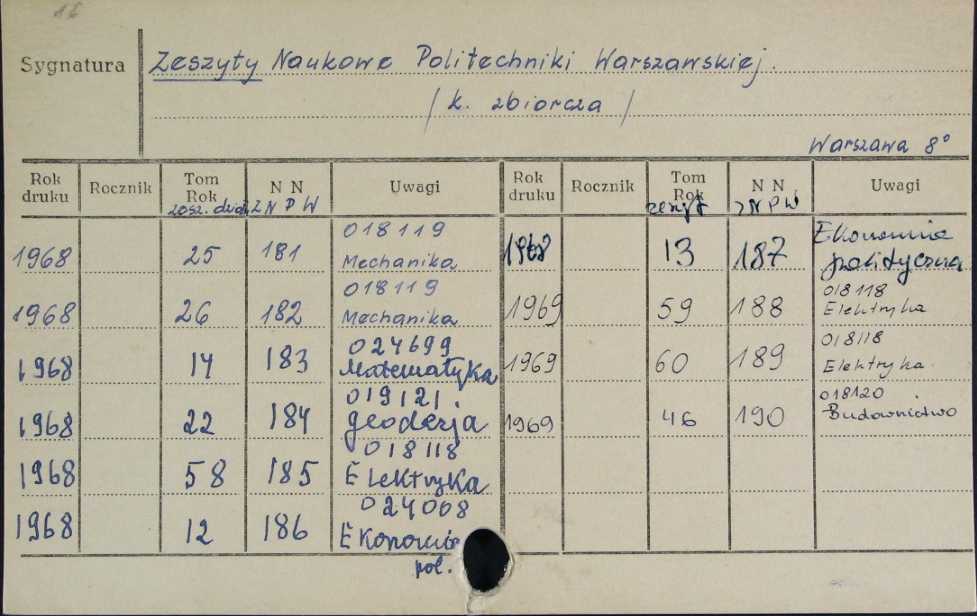 16
Sygnatura Zeszyty Naukowe Politechniki Warszawskiej.
/ k. zbiorcza /
Warszawa 8°
Rok druku Rocznik Tom Rok N N Uwagi Rok druku Rocznik Tom Rok N N Uwagi
Z N P W zeszyt Z N P W
1968 25 181 018119 Mechanika 1968 13 187 Ekonomia polityczna
1968 26 182 018119 Mechanika 1969 59 188 018118 Elektryka
1968 14 183 024699 Matematyka 1969 60 189 018118 Elektryka
1968 22 184 019121 geodezja 1969 46 190 018120 Budownictwo
1968 58 185 018118 Elektryka
1968 12 186 024008 Ekonomia
pol.